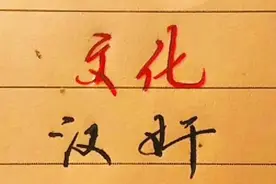 文化
汉奸